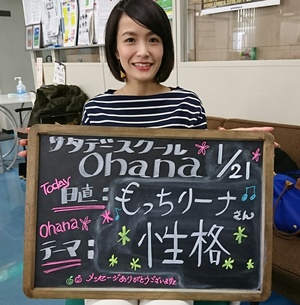 サタデースクール
Ohana 1/21
Today
日直：もっちリーナさん
Ohana
テーマ：性格
メッセージありがとうございます♪